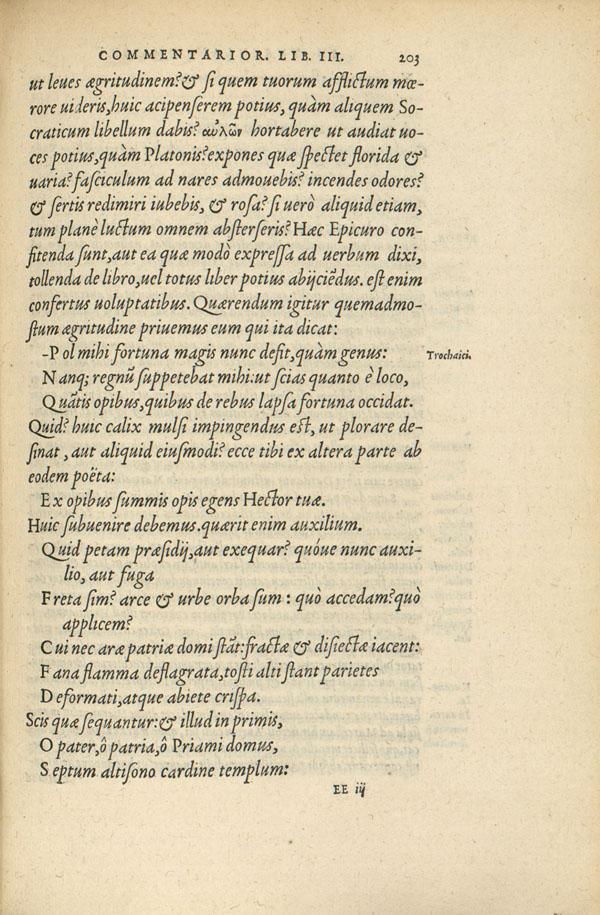 COMMENTARIOR. LIB. III. 203
ut leues ægritudinem? & si quem tuorum afflictum mœ-
rore uideris, huic acipenserem potius, quàm aliquem So-
craticum libellum dabis? αὐλῶν hortabere ut audiat uo-
ces potius, quàm Platonis? expones quæ spectet florida &
uaria? fasciculum ad nares admouebis? incendes odores?
& sertis redimiri iubebis, & rosa? si uerò aliquid etiam,
tum planè luctum omnem absterseris? Hæc Epicuro con-
fitenda sunt, aut ea quæ modò expressa ad uerbum dixi,
tollenda de libro, uel totus liber potius abijciẽdus. est enim
confertus uoluptatibus. Quærendum igitur quemadmo-
dum ægritudine priuemus eum qui ita dicat:
-Pol mihi fortuna magis nunc defit, quàm genus: Trochaici.
Nanq; regnũ suppetebat mihi: ut scias quanto è loco,
Quãtis opibus, quibus de rebus lapsa fortuna occidat.
Quid? huic calix mulsi impingendus est, ut plorare de-
sinat, aut aliquid eiusmodi? ecce tibi ex altera parte ab
eodem poëta:
Ex opibus summis opis egens Hector tuæ.
Huic subuenire debemus. quærit enim auxilium.
Quid petam præsidij, aut exequar? quóue nunc auxi-
lio, aut fuga
Freta sim? arce & urbe orba sum: quò accedam? quò
applicem?
Cui nec aræ patriæ domi stãt: fractæ & disiectæ iacent:
Fana flamma deflagrata, tosti alti stant parietes
Deformati, atque abiete crispa.
Scis quæ sequantur: & illud in primis,
O pater, ô patria, ô Priami domus,
Septum altisono cardine templum:
EE iij